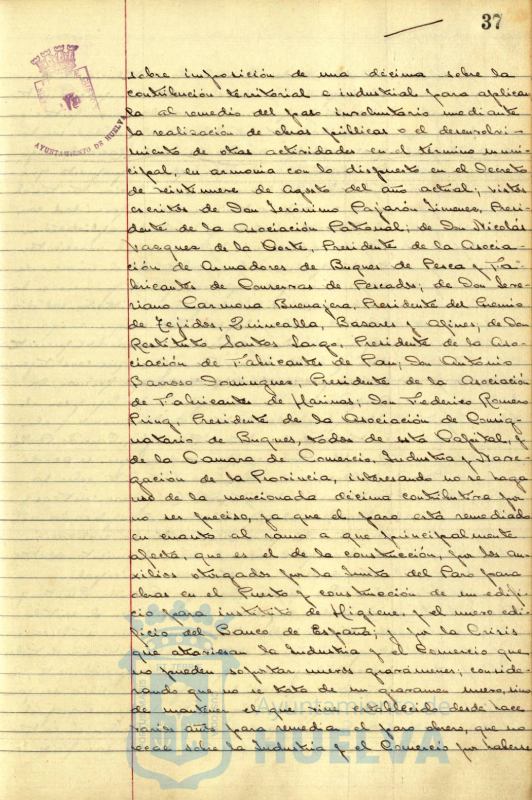 37
AYUNTAMIENTO DE HUELVA
sobre imposición de una décima sobre la
contribución territorial e industrial para aplicar
la al remedio del paro involuntario mediante
la realización de obras públicas o el desenvolvi-
miento de otras actividades en el término muni-
cipal, en armonía con lo dispuesto en el Decreto
de veintinueve de Agosto del año actual; vistos
escritos de Don Jerónimo Pajarón Jimenez, Presi-
dente de la Asociación Patronal; de Don Nicolás
Vazquez de la Corte, Presidente de la Asocia-
ción de Armadores de Buques de Pesca y Fa-
bricantes de Conservas de Pescados; de Don Seve-
riano Carmona Buenajera, Presidente del Gremio
de Tejidos, Quincalla, Bazares y Afines; de Don
Restituto Santos Largo, Presidente de la Aso-
ciación de Fabricantes de Pan; Don Antonio
Barroso Dominguez, Presidente de la Asociación
de Fabricantes de Harinas; Don Federico Romero
Presidente de la Asociación de Consig-
natario de Buques, todos de esta Capital, y
de la Camara de Comercio, Industria y Nave-
gación de la Provincia, interesando no se haga
uso de la mencionada décima contributiva por
no ser preciso, ya que el paro está remediado
en cuanto al ramo a que principalmente
afecta, que es el de la construcción, por los au-
xilios otorgados por la Junta del Paro para
obras en el Puerto y construcción de un edifi-
cio para instituto de Higiene y el nuevo edi-
ficio del Banco de España; y por la Crisis
que atraviesan la Industria y el Comercio que
no pueden soportar nuevos gravámenes; conside-
rando que no se trata de un gravamen nuevo, sino
de mantener el que vino establecido desde hace
varios años para remediar el paro obrero, que no
recae sobre la Industria y el Comercio por haberse
Ayuntamiento de
HUELVA